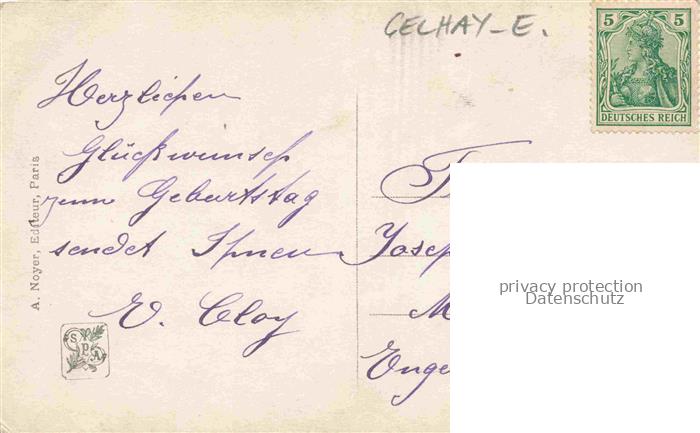 CELHAY-E.
5 5
DEUTSCHES REICH
Herzlichen
Glückwunsch
zum Geburtstag
sendet Ihnen
A. Noyer, Editeur, Paris
SPA
Josep
M
Enge
privacy protection
Datenschutz